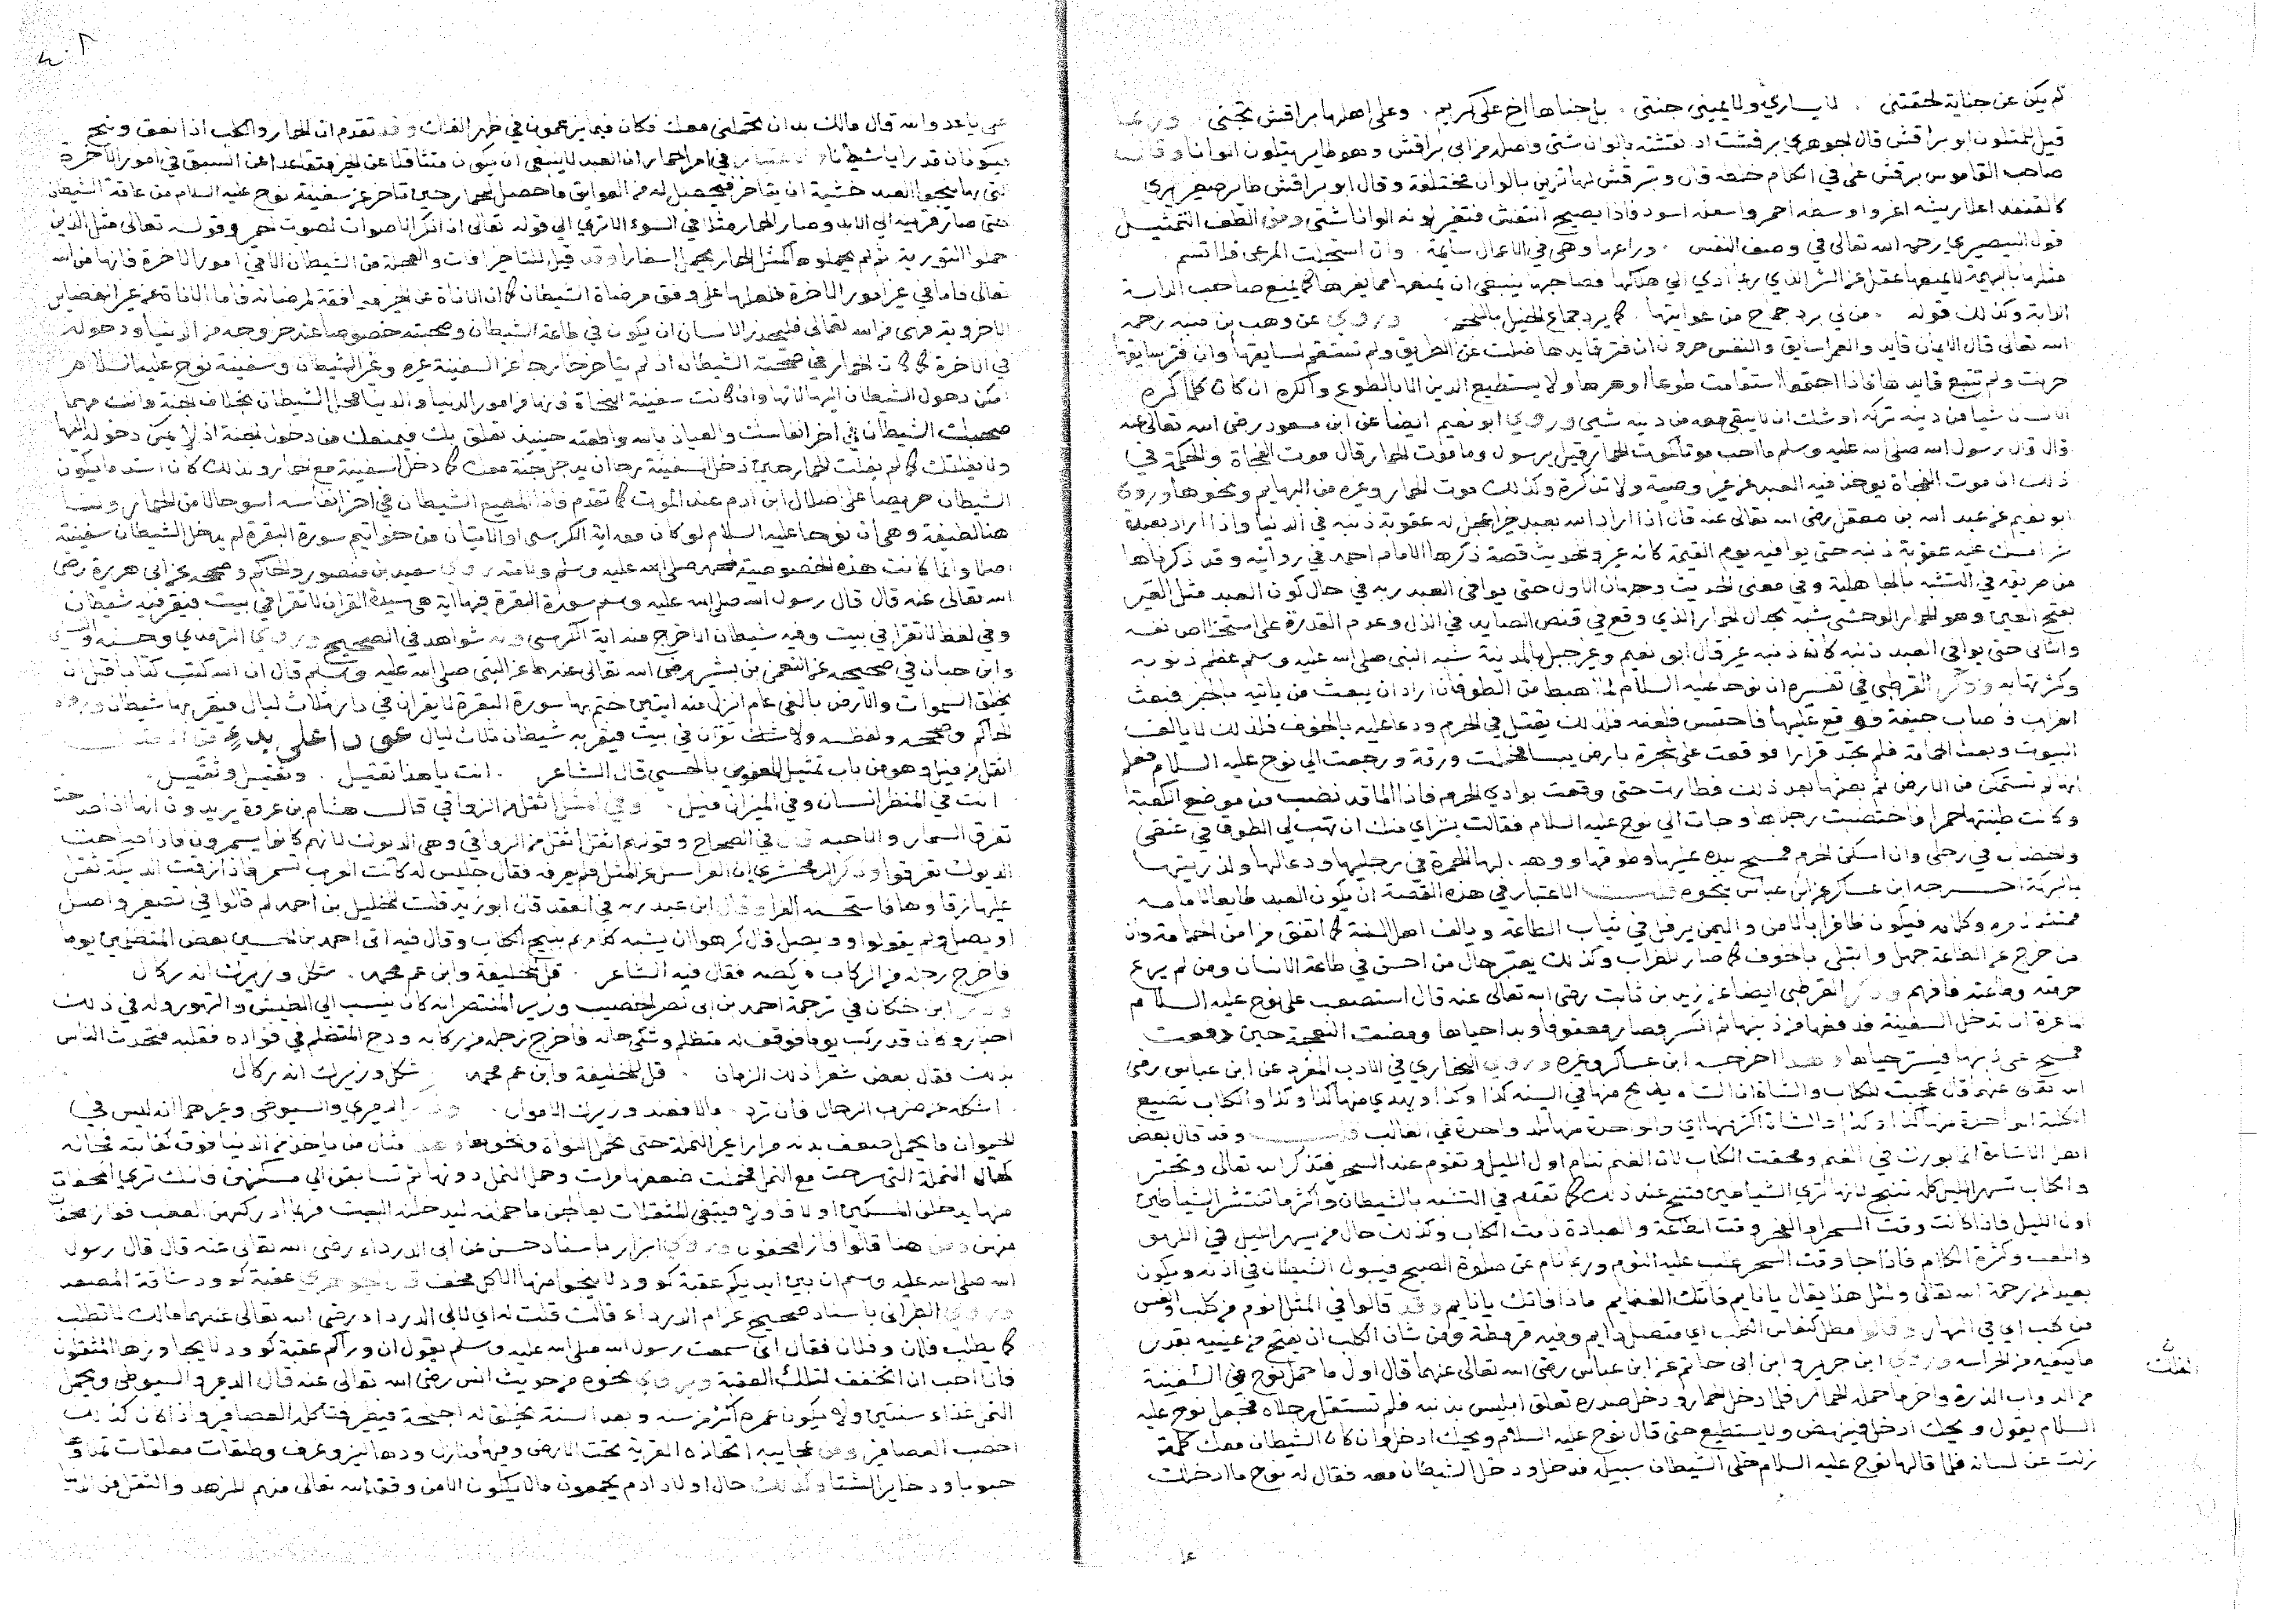 لم يكن عن جناية لحقتني . لا يساري ولا يميني جنتني . بل جناها اخ علي كريم . وعلى اهلها براقش تجني
قيل للمتلون ابو براقش قال الجوهري برقشت اذا نقشته بالوان شتى واصله من ابي براقش وهو طاير يتلون الوانا وقال
صاحب القاموس برقش علي في الكلام خلطه وتبرقش لنا تزين بالوان مختلفة وقال ابو براقش طاير صغير بري
كالقنفذ اعلا ريشه اغر واوسطه احمر واسفله اسود فاذا يصيح انتفش فتغير لونه الوانا شتى ومن الطف التمثيل
قول البصيري رحمه الله تعالى في وصف النفس . وراعها وهي في الاعمال سايمة . وان استحلت المرعى فلا تسم .
الدابة وكذلك قوله . من لي برد جماح من غوايتها . كما يرد جماح الخيل باللجم . وروي عن وهب بن منبه رحمه
الله تعالى قال الايمان قايد والعمل سايق والنفس حرون ان فتر قايدها ضلت عن الطريق ولم تستقم لسايقها وان فتر سايقها
حرنت ولم تتبع قايدها فاذا اجتمعا استقامت طوعا او كرها ولا يستطيع الدين الا بالطوع والكره ان كان كلما كره
الانسان شيا من دينه تركه اوشك ان لا يبقى معه من دينه شيء وروي ابو نعيم ايضا عن ابن مسعود رضي الله تعالى عنه
قال قال رسول الله صلى الله عليه وسلم ما احب موتا كموت الحمار قيل يرسول وما موت الحمار قال موت الفجاة والحكمة في
ذلك ان موت الفجاة يوخذ فيه العبد عن غير وصية ولا تذكرة وكذلك موت الحمار وغيره من البهايم ونحوها وروى
ابو نعيم عن عبد الله بن مغفل رضي الله تعالى عنه قال اذا اراد الله بعبد خيرا عجل له عقوبة ذنبه في الدنيا واذا اراد بعبده
شرا امسك عليه عقوبة ذنبه حتى يوافيه يوم القيمة كانه عير وللحديث قصة ذكرها الامام احمد في روايته وقد ذكرناها
من طريقه في التشبه بالجاهلية وفي معنى الحديث وجهان الاول حتى يوافي العبد ربه في حال كون العبد مثل العير
بفتح العين وهو الحمار الوحشي شبه بحال الحمار الذي وقع في قنص الصايد في الذل وعدم القدرة على استخلاص نفسه
والثاني حتى يوافي العبد ذنبه كانه ذنبه عير قال ابو نعيم وعير جبل بالمدينة شبه النبي صلى الله عليه وسلم عظم ذنوبه
وكثرتها به وذكر القرطبي في تفسيره ان نوحا عليه السلام لما هبط من الطوفان اراد ان يبعث من ياتيه بالخبر فبعث
الغراب فاصاب جيفة فوقع عليها فاحتبس فلعنه فلذلك يقتل في الحرم ودعا عليه بالخوف فلذلك لا يالف
البيوت وبعث الحمامة فلم تجد قرارا فوقعت على شجرة بارض سبا فحملت ورقة ورجعت الى نوح عليه السلام فعلم
انها لم تستمكن من الارض ثم بعثها بعد ذلك فطارت حتى وقعت بوادي الحرم فاذا الماء قد نضب من موضع الكعبة
وكانت طينتها حمرا فاختضبت رجلاها وجات الى نوح عليه السلام فقالت بشراي منك ان تهب لي الطوق في عنقي
والخضاب في رجلي وان اسكن الحرم فمسح بيده عليها وطوقها ووهب لها الحمرة في رجليها ودعا لها ولذريتها
بالبركة اخرجه ابن عساكر عن ابن عباس بنحوه قلت الاعتبار في هذه القصة ان يكون العبد طايعا لامامه
من خرج عن الطاعة جهل وابتلي بالخوف كما صار للغراب وكذلك يعتبر حال من احسن في طاعة الانسان ومن لم يرع
حرمته وطاعته فافهم وذكر القرطبي ايضا عن زيد بن ثابت رضي الله تعالى عنه قال استصعب على نوح عليه السلام
الماعزة ان تدخل السفينة فدفعها في ذنبها فانكسر فصار معقوفا وبدا حياها ومضت النعجة حين دخلت
فمسح على ذنبها فستر حياها وهذا اخرجه ابن عساكر وغيره وروى البخاري في الادب المفرد عن ابن عباس رضي
الله تعالى عنهما قال عجبت للكلاب والشاة ان الشاه يذبح منها في السنه كذا وكذا ويهدي منها كذا وكذا والكلاب تضيع
الكلبة الواحدة منها كذا وكذا والشاة اكثر منها اي والواحدة منها تلد واحدة في الغالب قلت وقد قال بعض
اهل الاشارة انما بورك في الغنم ومحقت الكلاب لان الغنم تنام اول الليل وتقوم عند السحر فتذكر الله تعالى وتجتر
والكلاب تسهر الليل كله تنبح لانها ترى الشياطين فتنبح عند ذلك كما تقدم في التشبه بالشيطان واكثر ما تنتشر الشياطين
اول الليل فاذا كانت وقت السحر والفجر وقت الطاعة والعبادة نامت الكلاب وكذلك حال من يسهر الليل في اللهو
واللعب وكثرة الكلام فاذا جا وقت السحر غلب عليه النوم وربما نام عن صلوة الصبح فيبول الشيطان في اذنه ويكون
بعيدا من رحمة الله تعالى ولمثل هذا يقال يا نايم فاتك الغنايم ماذا فاتك يا نايم وقد قالوا في المثل انوم من كلب وانعس
من كلب اي في النهار وقالوا مطل كنعاس الكلب اي متصل دايم وفيه قرمطة ومن شان الكلب ان يفتح من عينيه بقدر
ما يكفيه من الحراسه وروى ابن جرير وابن ابي حاتم عن ابن عباس رضي الله تعالى عنهما قال اول ما حمل نوح في السفينة
الفلك
من الدواب الذرة واخر ما حمله الحمار فلما دخل الحمار ودخل صدره تعلق ابليس بذنبه فلم تستقل رجلاه فجعل نوح عليه
السلام يقول ويحك ادخل فينهض ولا يستطيع حتى قال نوح عليه السلام ويحك ادخل وان كان الشيطان معك كلمة
زلت عن لسانه فلما قالها نوح عليه السلام خلى الشيطان سبيله فدخل ودخل الشيطان معه فقال له نوح ما ادخلك
علي يا عدو الله قال مالك بد ان تحملني معك فكان فيما يزعمون في ظهر الفلك وقد تقدم ان الحمار والكلب اذا نهق ونبح
حتى صار قرينه الى الابد وصار الحمار مثلا في السوء الا ترى الى قوله تعالى ان انكر الاصوات لصوت الحمير وقوله تعالى مثل الذين
حملوا التورية ثم لم يحملوها كمثل الحمار يحمل اسفارا وقد قيل للتاخير افات والعجلة من الشيطان الا في امور الاخرة فانها من الله
في الاخرة كما كان الحمار في صحبة الشيطان اذ لم يتاخر خارجا عن السفينة غيره وغير الشيطان وسفينة نوح عليه السلام
امكن دخول الشيطان اليها لانها وان كانت سفينة النجاة فانها من امور الدنيا والدنيا محل الشيطان بخلاف الجنة وانت مهما
صحبك الشيطان في اخر انفاسك والعياذ بالله واطعته حينيذ تعلق بك فيمنعك من دخول الجنة اذ لا يمكن دخوله اليها
الشيطان حريصا على اضلال ابن ادم عند الموت كما تقدم فاذا المطيع الشيطان في اخر انفاسه اسو حالا من الحمار وهنا
هنا لطيفة وهي ان نوحا عليه السلام لو كان معه اية الكرسي او الايتان من خواتيم سورة البقرة لم يدخل الشيطان سفينته
اصلا وانما كانت هذه الخصوصية لمحمد صلى الله عليه وسلم ولامته روى سعيد بن منصور والحاكم وصححه عن ابي هريرة رضي
الله تعالى عنه قال قال رسول الله صلى الله عليه وسلم سورة البقرة فيها اية هي سيدة القران لا تقرا في بيت فيقربه شيطان
وفي لفظ لا تقرا في بيت وفيه شيطان الا خرج منه اية الكرسي وله شواهد في الصحيح وروى الترمذي وحسنه والنسائي
وابن حبان في صحيحه عن النعمن بن بشير رضي الله تعالى عنهما عن النبي صلى الله عليه وسلم قال ان الله كتب كتابا قبل ان
يخلق السموات والارض بالفي عام انزل منه ايتين ختم بهما سورة البقرة لا يقران في دار ثلاث ليال فيقربها شيطان ورواه
الحاكم وصححه ولفظه ولا تقران في بيت فيقربه شيطان ثلاث ليال
اثقل من فيل وهو من باب تمثيل المعنوي بالحسي قال الشاعر . انت يا هذا ثقيل . وثقيل وثقيل .
انت في المنظر انسان وفي الميزان فيل . وفي المثل اثقل من الزواقي قال هشام بن عروة يريدون انها اذا صاحت
تفرق السمار والاحبة قال في الصحاح وقولهم اثقل من الزواقي وهي الديوك لانهم كانوا يسمرون فاذا صاحت
الديوك تفرقوا وذكر الزمخشري ان الفرا سئل عن المثل فلم يعرفه فقال جليس له كانت العرب تسمر فاذا زقت الديكة ثقل
عليها زقاوها فاستحسنه الفرا وقال ابن عبد ربه في العقد قال ابو زيد قلت للخليل بن احمد لم قالوا في تصغير واصل
اويصل ولم يقولوا وويصل قال كرهوا ان يشبه كلامهم بنبح الكلاب وقال فيه اتى احمد بن الحسين بعض المتظلمين يوما
فاخرج رجله من الركاب فركضه فقال فيه الشاعر . قل للخليفة يا ابن عم محمد . شكل وزيرك انه ركال
وذكر ابن خلكان في ترجمة احمد بن ابي نصر الخصيب وزير المنتصر انه كان ينسب الى الطيش والتهور وله في ذلك
اخبار وكان قد ركب يوما فوقف له متظلم وشكى حاله فاخرج رجله من ركابه ودج المتظلم في فواده فقتله فتحدث الناس
بذلك فقال بعض شعرا ذلك الزمان . قل للخليفة يا ابن عم محمد . شكل وزيرك انه ركال
اشكله عن ضرب الرجال فان ترد . مالا فعند وزيرك الاموال . وذكر الدميري والسيوطي وغيرهما انه ليس في
الحيوان ما يحمل ضعف بدنه مرارا غير النملة حتى تحمل النواة ونحوها وهذا مثال من ياخذ من الدنيا فوق كفايته فحاله
كحال النملة التي سرحت مع النمل فحملت ضعفها مرات وحمل النمل دونها ثم تسابقن الى مسكنهن فانك ترى المخفات
منهن ومن هنا قالوا فاز المخفون وروى البزار باسناد حسن عن ابي الدرداء رضي الله تعالى عنه قال قال رسول
الله صلى الله عليه وسلم ان بين ايديكم عقبة كوود لا ينجوا منها الا كل مخف قال الجوهري عقبة كوود شاقة المصعد
وروى الطبراني باسناد صحيح عن ام الدرداء قالت قلت له اي لابي الدرداء رضي الله تعالى عنهما مالك لا تطلب
كما يطلب فلان وفلان فقال اني سمعت رسول الله صلى الله عليه وسلم يقول ان وراكم عقبة كوود لا يجاوزها المثقلون
فانا احب ان اتخفف لتلك العقبة وروي نحوه من حديث انس رضي الله تعالى عنه قال الدميري والسيوطي ويحمل
النمل غذاء سنتين ولا يكون عمره اكثر من سنة وبعد السنة يخلق له اجنحة فيطير فتاكله العصافير واذا كان كذلك
اخصب العصافير ومن عجايبه اتخاذه القرية تحت الارض وفيها منازل ودهاليز وغرف وطبقات معلقات تملاها
حبوبا وذخاير للشتا وكذلك حال اولاد ادم يجمعون مالا ياكلون الا من وفقه الله تعالى منهم للزهد والتقلل من الدنيا